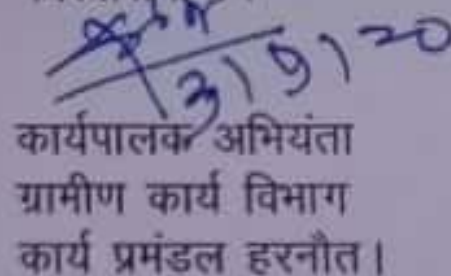 3/9/20
कार्यपालक अभियंता
ग्रामीण कार्य विभाग
कार्य प्रमंडल हरनौत।